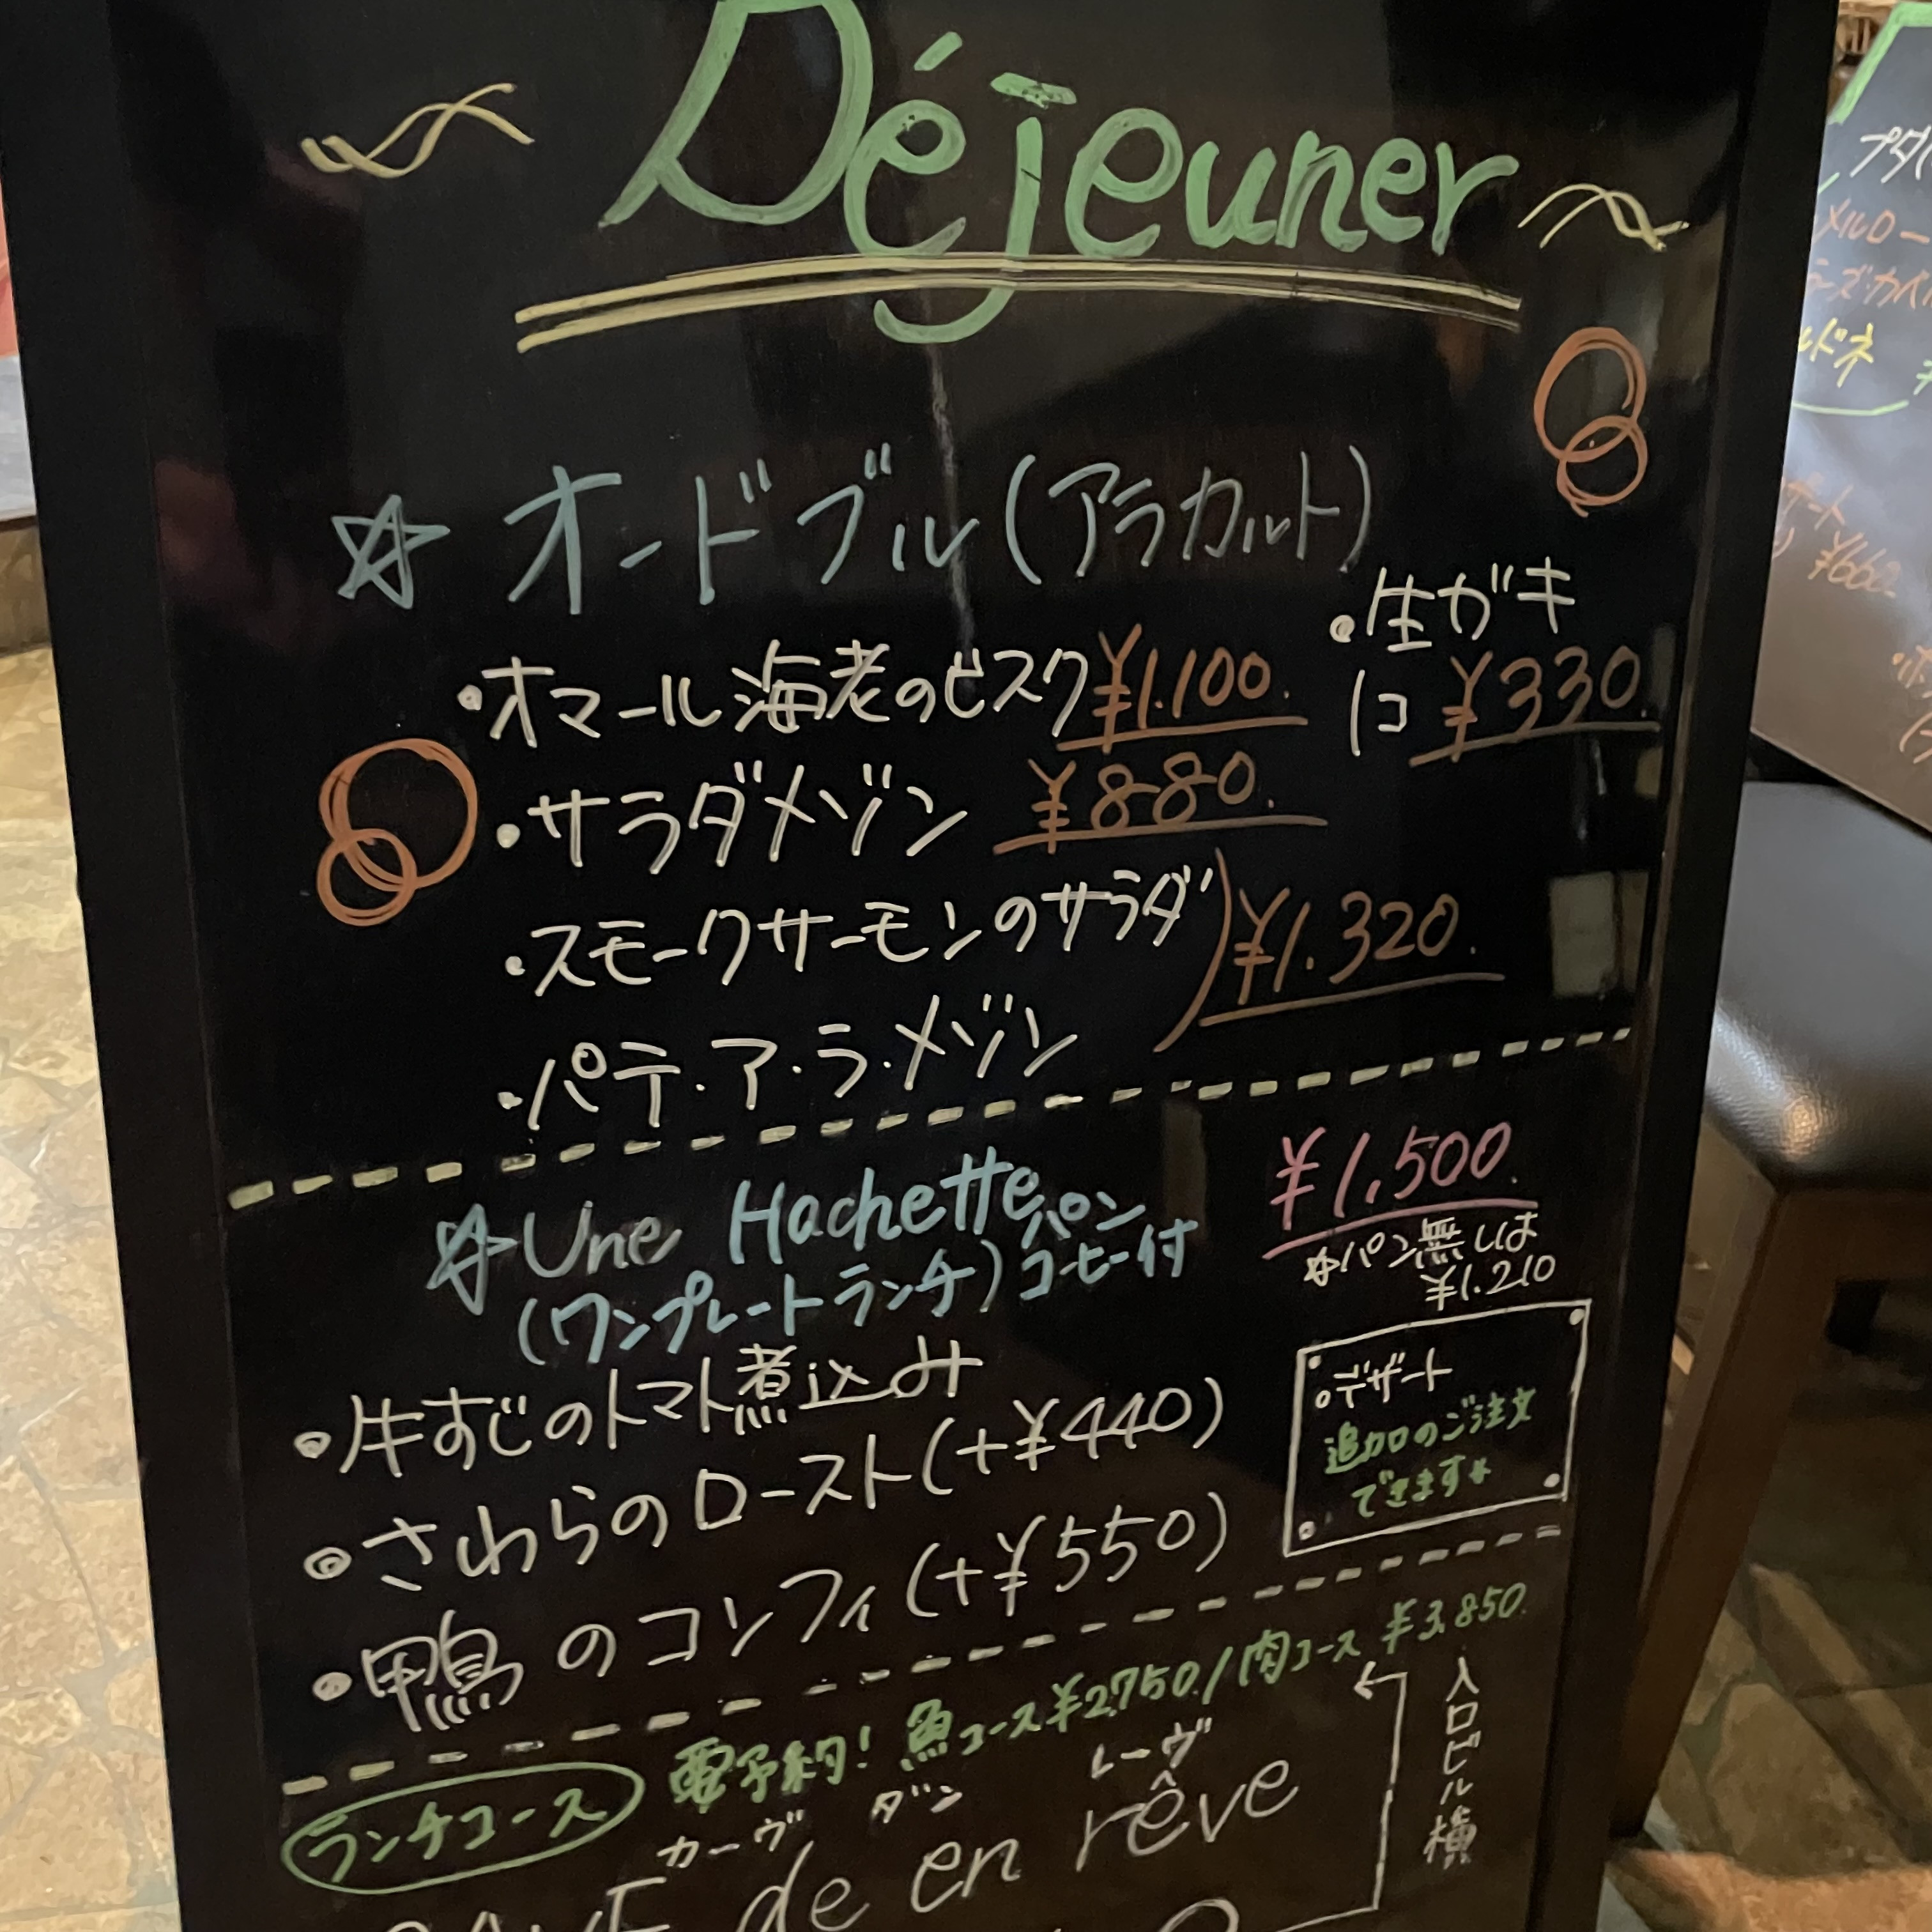 Déjeuner
☆ オードブル(アラカルト)
・オマール海老のビスク ¥1.100.
・生ガキ
1コ ¥330.
・サラダメゾン ¥880.
・スモークサーモンのサラダ
・パテ・ア・ラ・メゾン
¥1.320.
☆ Une Hachette パン
(ワンプレートランチ) コーヒー付
¥1,500.
☆パン無しは
¥1.210
・牛すじのトマト煮込み
・さわらのロースト(+¥440)
・鴨のコンフィ(+¥550)
○デザート
追加のご注文
できます☆
ランチコース 要予約! 魚コース¥2.750./肉コース ¥3.850.
カーヴ ダン レーヴ
CAVE de en rêve
入口ビル横
メルロー
ルドネ
¥660